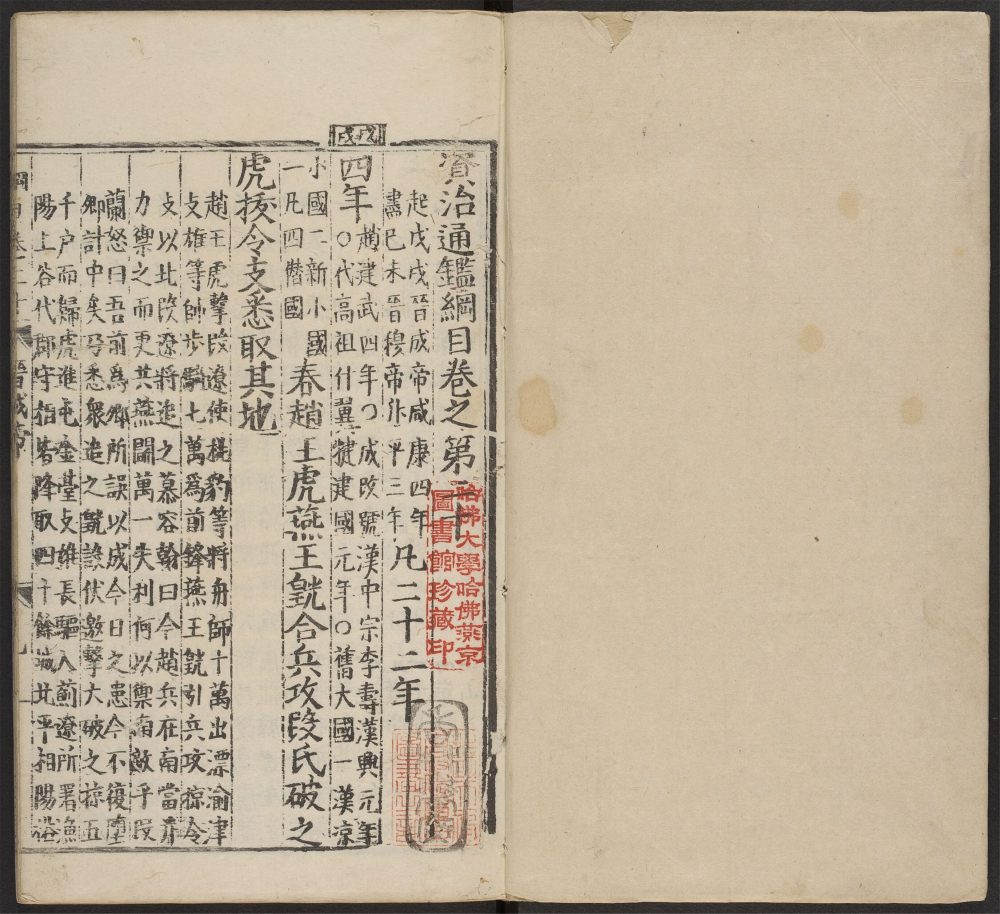 資治通鑑綱目卷之第二十
起戊戌晉成帝咸康四年
盡己未晉穆帝升平三年
凡二十二年
戊戌
四年
○趙建武四年○成改號漢中宗李壽漢興元年
○代高祖什翼犍建國元年○舊大國一漢凉
小國二新小國
一凡四僭國
春趙王虎燕王皝合兵攻段氏破之
虎拔令支悉取其地
趙王虎擊段遼使桃豹等將舟師十萬出漂渝津
支雄等帥步騎七萬爲前鋒燕王皝引兵攻掠令
支以北段遼將追之慕容翰曰今趙兵在南當并
力禦之而更與燕鬪萬一失利何以禦南敵乎段
蘭怒曰吾前爲卿所誤以成今日之患今不復墮
卿計中矣乃悉衆追之皝設伏邀擊大破之掠五
千户而歸虎進屯金臺支雄長驅入薊遼所署漁
陽上谷代郡守相皆降取四十餘城北平相陽裕
晉成帝
哈佛大學哈佛燕京
圖書館珍藏印